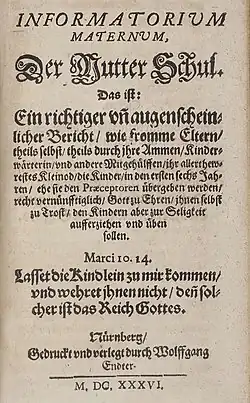 INFORMATORIUM
MATERNUM,
Der Mutter Schul.
Das ist:
Ein richtiger vñ augenschein-
licher Bericht/ wie fromme Eltern/
theils selbst/ theils durch jhre Ammen/ Kinder-
wärterin/ vnd andere Mitgehülffen/ jhr allerthew-
restes Kleinod/ die Kinder/ in den ersten sechs Jah-
ren/ ehe sie den Præceptoren übergeben werden/
recht vernünfftiglich/ Gott zu Ehren/ jhnen selbst
zu Trost/ den Kindern aber zur Seligkeit
aufferziehen vnd üben
sollen.
Marci 10. 14.
Lasset die Kindlein zu mir kommen/
vnd wehret jhnen nicht/ deñ sol-
cher ist das Reich Gottes.
Nürnberg/
Gedruckt vnd verlegt durch Wolffgang
Endter.
M, DC, XXXVI.